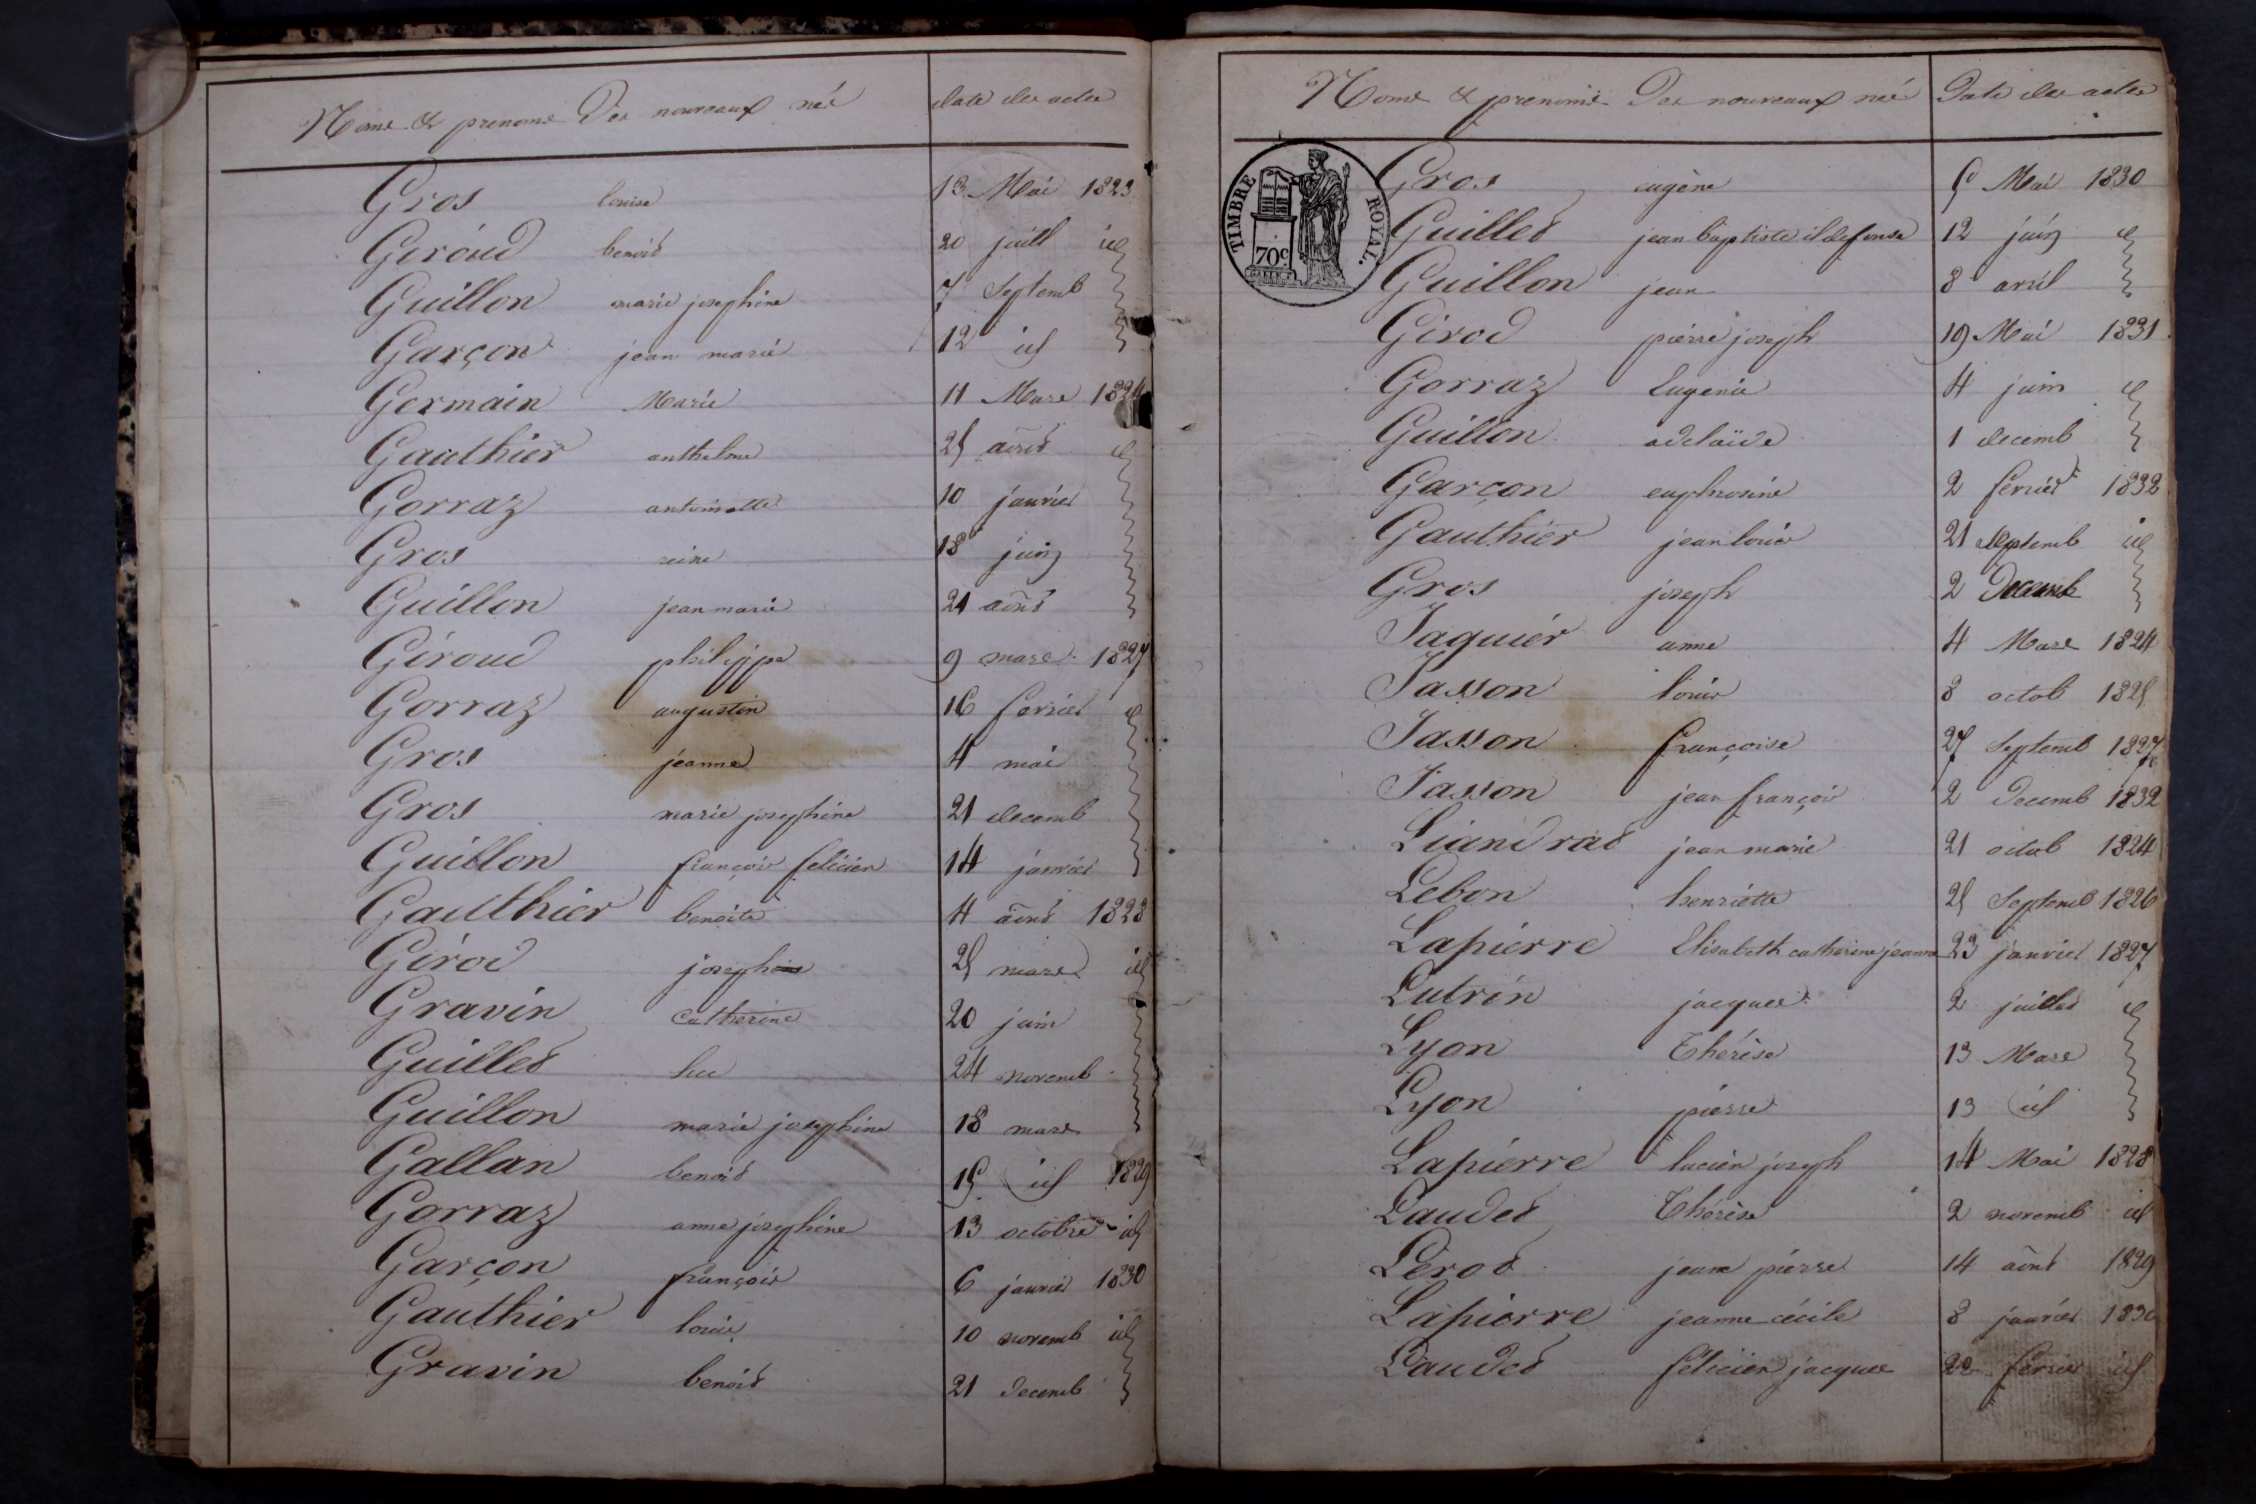 Noms & prenoms Des nouveaux née date des actes
Gros louise 13 Mai 1823
Giroud benoit 20 juill id
Guillon marie josephine 7 Septemb
Garçon jean marie 12 id
Germain Marie 11 Mars 1824
Gauthier anthelme 25 août id
Gorraz antoinette 10 janvier
Gros reine 18 juin
Guillon jean marie 21 août
Giroud philippe 9 mars 1827
Gorraz augustin 16 fevrier id
Gros jeanne 4 mai
Gros marie josephine 21 decemb
Guillon françois felicien 14 janvier
Gauthier benoite 4 août 1828
Girod joseph 25 mars id
Gravin Catherine 20 juin
Guillet luc 24 novemb
Guillon marie josephine 18 mars
Gallan benoit 15 id 1829
Gorraz anne josephine 13 octobre id
Garçon françois 6 janvier 1830
Gauthier louis 10 novemb id
Gravin benoit 21 decemb
Noms & prenoms Des nouveaux née Date des actes
TIMBRE ROYAL.
70c.
Gros eugène 5 Mai 1830
Guillet jean baptiste ildefonse 12 juin id
Guillon jean 8 avril
Girod pierre joseph 19 Mai 1831
Gorraz Eugenie 4 juin id
Guillon adelaïde 1 decemb
Garçon euphrosine 2 fevrier 1832
Gauthier jean louis 21 septemb id
Gros joseph 2 Decemb
Jaquier anne 4 Mars 1824
Jasson louis 8 octob 1825
Jasson françoise 27 Septemb 1827
Jasson jean françois 2 decemb 1832
Liandrat jean marie 21 octob 1824
Lebon henriette 25 Septemb 1826
Lapierre Elisabeth catherine jeanne 23 janvier 1827
Lutrin jacques 2 juillet id
Lyon Thérèse 13 Mars
Lyon pierre 13 id
Lapierre lucien joseph 14 Mai 1828
Laudet Thérèse 2 novemb id
Lerot jean pierre 14 août 1829
Lapierre jeanne cécile 8 janvier 1830
Laudet felicien jacques 20 fevrier id